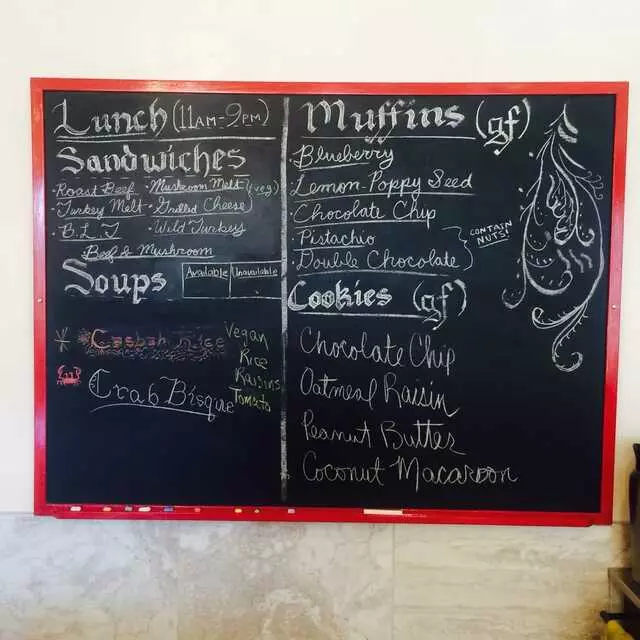 Lunch (11AM-9PM)
Sandwiches
· Roast Beef · Mushroom Melt (veg)
· Turkey Melt · Grilled Cheese
· B.L.T · Wild Turkey
Beef & Mushroom
Soups Available Unavailable
Casbah rice
Vegan
Rice
Raisins
Tomato
Crab Bisque
Muffins (gf)
· Blueberry
· Lemon-Poppy Seed
· Chocolate Chip
· Pistachio
· Double Chocolate
CONTAIN
NUTS!
Cookies (gf)
Chocolate Chip
Oatmeal Raisin
Peanut Butter
Coconut Macaroon